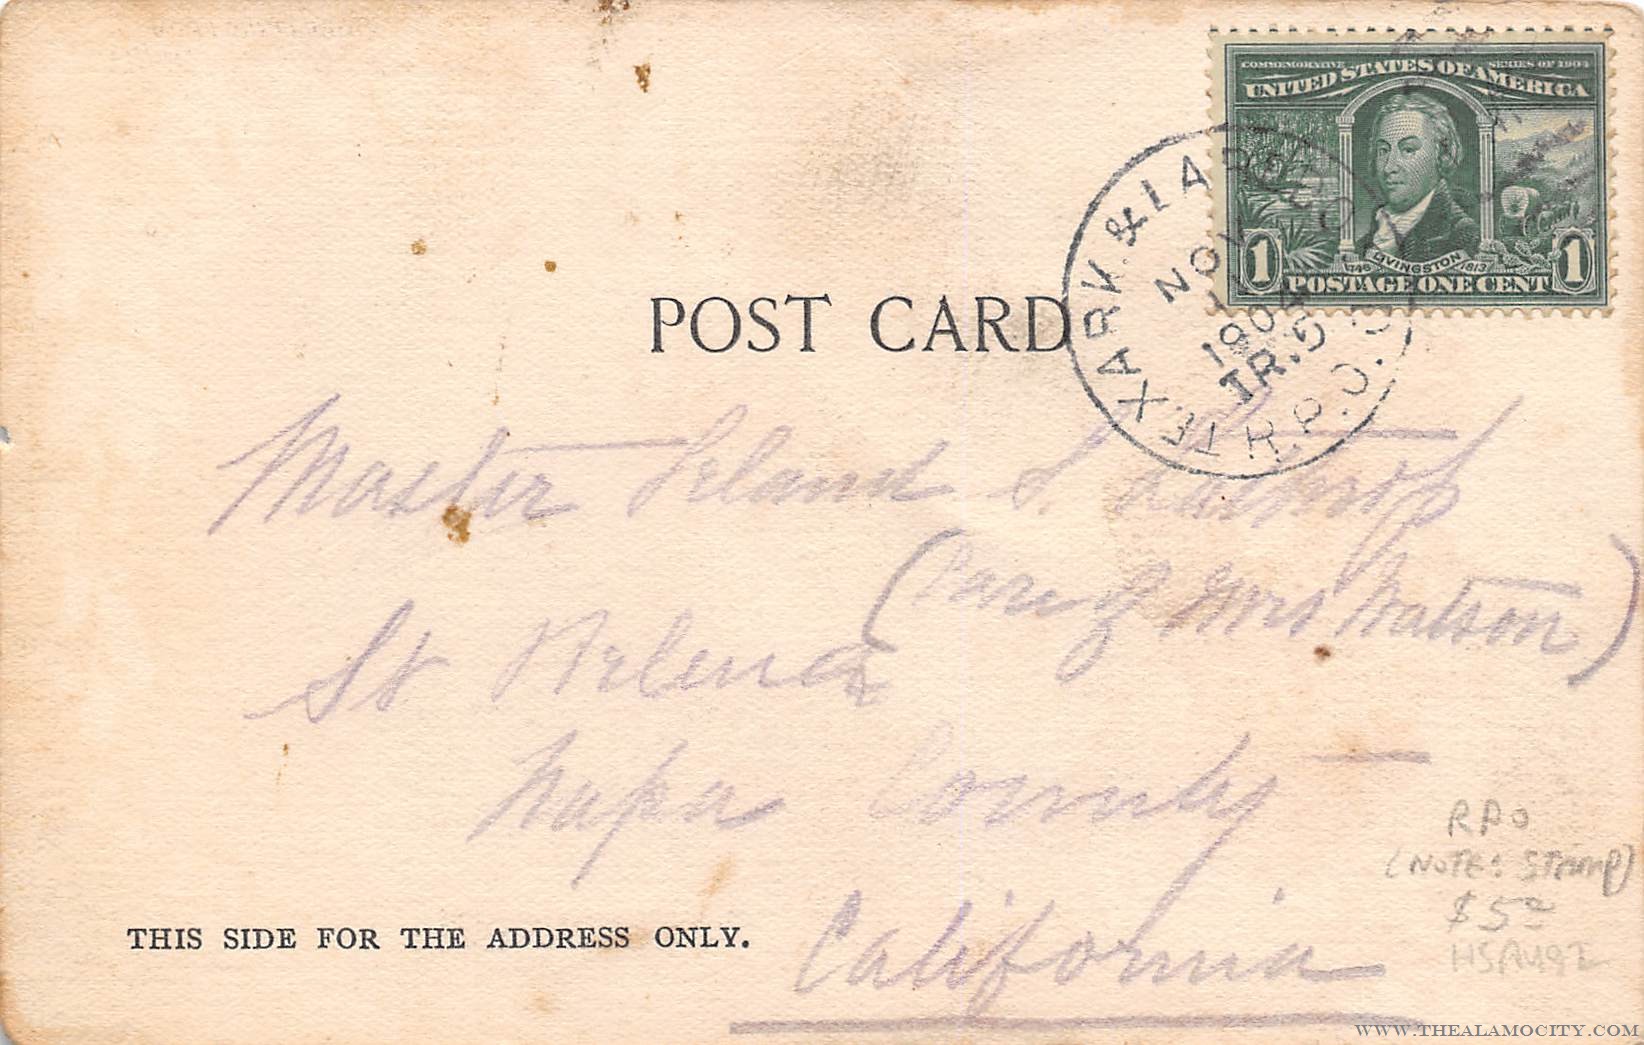 COMMEMORATIVE SERIES OF 1904
UNITED STATES OF AMERICA
1746 LIVINGSTON 1813
1 POSTAGE ONE CENT 1
TEXARK. & LAREDO
R.P.O.
NOV
1904
TR.5
POST CARD
Master Leland S. Lathrop
(Care of Mrs Watson)
St Helena
Napa County
California
THIS SIDE FOR THE ADDRESS ONLY.
RPO
(NOTE: STAMP)
$5
WWW.THEALAMOCITY.COM